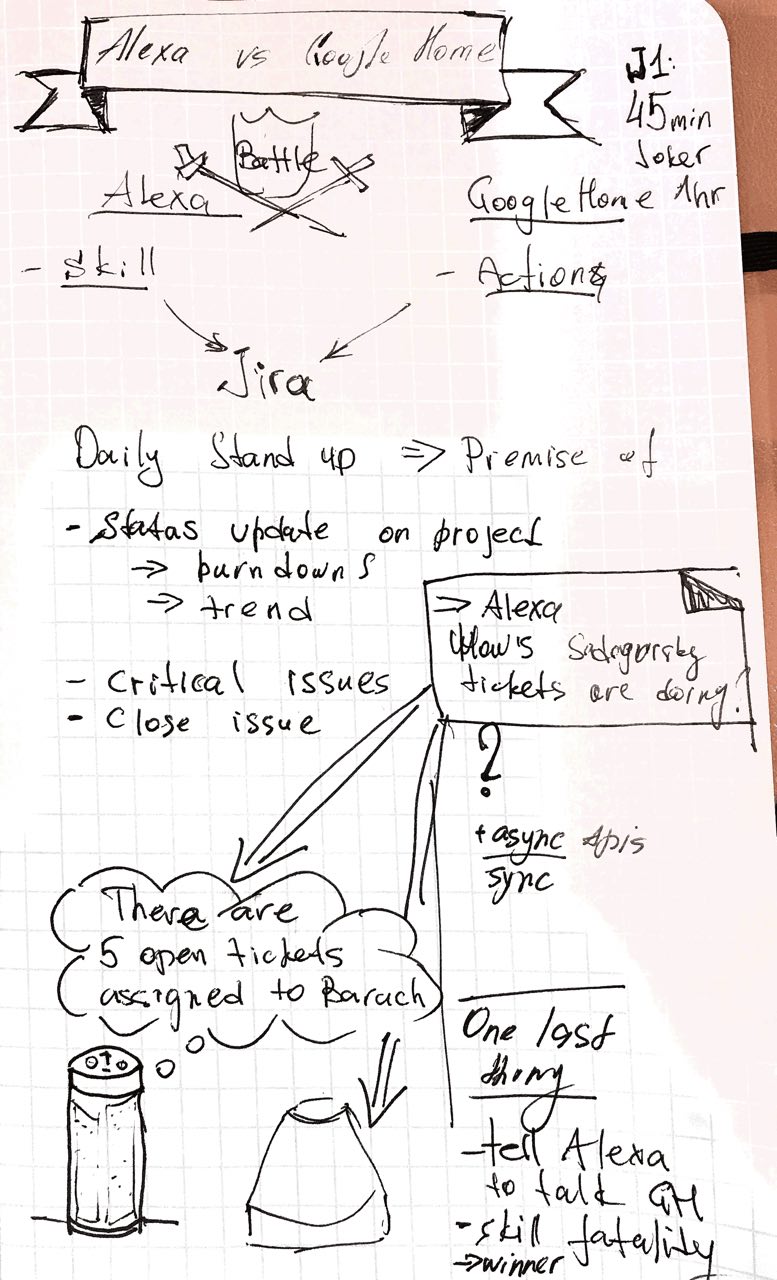 Alexa vs Google Home
J1:
45min
Joker
1hr
Battle
Alexa
Google Home
- Skill
- Actions
Jira
Daily Stand up ⇒ Premise of
- Status update on project
→ burndowns
→ trend
- Critical issues
- Close issue
⇒ Alexa
How's Sadogursky
tickets are doing?
?
+ async apis
sync
There are
5 open tickets
assigned to Baruch
One last
thing
- tell Alexa
to talk GH
- skill fatality
→ winner